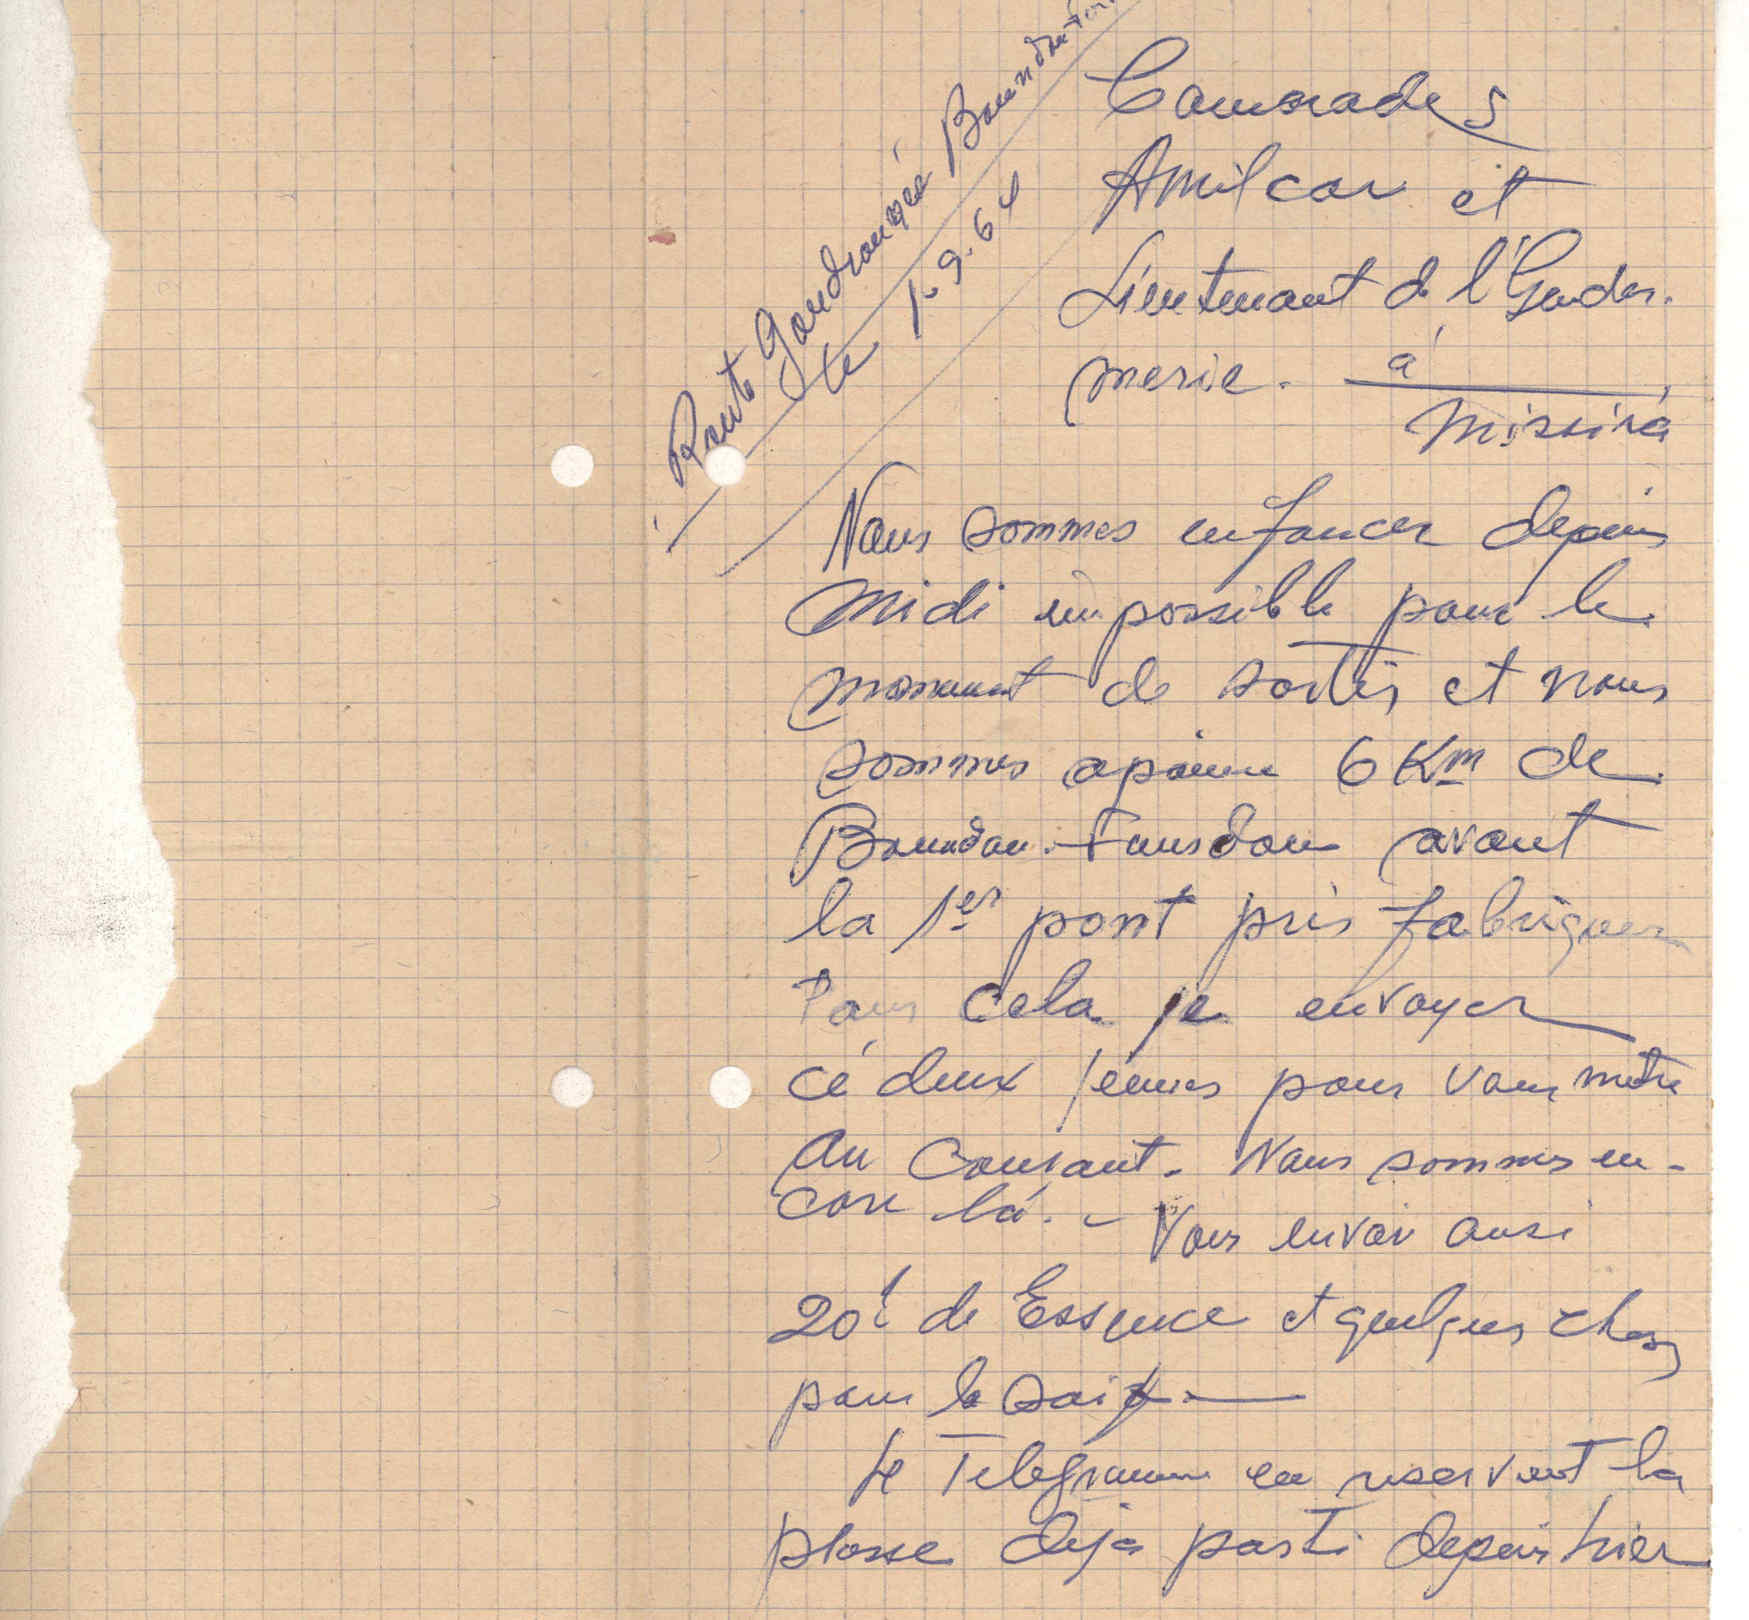 Route Goudronnée Boundou
le 1-9-64
Camarades
Amilcar et
Lieutenant de l'Gendar-
merie. à
Missirá
Nous sommes enfoncer depuis
midi impossible pour le
monument de sortir et nous
sommes apeine 6 Km de
Boundou-Foundou avant
la 1er pont près fabriquer
Pour cela je envoyer
cé deux jeunes pour vous metre
au Courant. Nous sommes en-
core là. - Vous envoi ausi
20l de Essence et quelques choses
pour la soif.
Le Telegramme en reservent la
plasse deja parti depuis hier